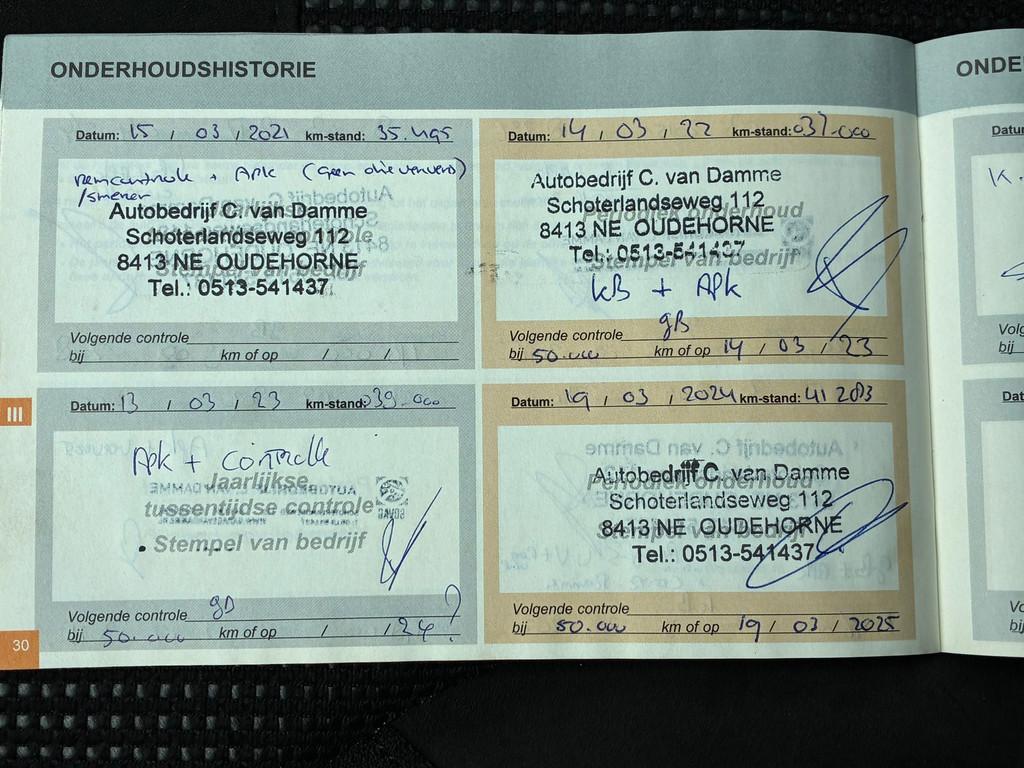 ONDERHOUDSHISTORIE
Datum: 15 / 03 / 2021 km-stand: 35.495
remcontrole + APK (geen olie ververs)
/smeren
Autobedrijf C. van Damme
Schoterlandseweg 112
8413 NE OUDEHORNE
Stempel van bedrijf
Tel.: 0513-541437
Volgende controle
bij km of op / /
Datum: 14 / 03 / 22 km-stand: 037.000
Autobedrijf C. van Damme
Schoterlandseweg 112
Periodiek onderhoud
8413 NE OUDEHORNE
Tel.: 0513-541437
Stempel van bedrijf
KB + APK
Volgende controle gB
bij 50.000 km of op 14 / 03 / 23
Datum: 13 / 03 / 23 km-stand: 039.000
APK + Controle
Jaarlijkse
tussentijdse controle
Stempel van bedrijf
Volgende controle gB
bij 50.000 km of op / / 24?
Datum: 19 / 03 / 2024 km-stand: 41283
Autobedrijf C. van Damme
Periodiek onderhoud
Schoterlandseweg 112
8413 NE OUDEHORNE
Stempel van bedrijf
Tel.: 0513-541437
Volgende controle
bij 50.000 km of op 19 / 03 / 2025
III
30
ONDE
Datu
K.
Volg
bij
Dat
Vo
bij